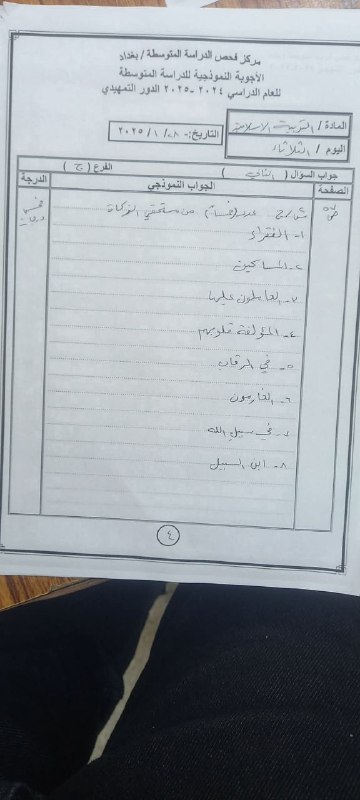 مركز فحص الدراسة المتوسطة / بغداد
الأجوبة النموذجية للدراسة المتوسطة
للعام الدراسي ٢٠٢٤ -٢٠٢٥ الدور التمهيدي
المادة / التربية الاسلامية
اليوم / الثلاثاء
التاريخ:- ٢٨ / ١ / ٢٠٢٥
جواب السؤال ( الثاني ) الفرع ( ج )
الصفحة الجواب النموذجي الدرجة
عدد (خمسة) من مستحقي الزكاة خمس درجات
١- الفقراء
٢- المساكين
٣- العاملون عليها
٤- المؤلفة قلوبهم
٥- في الرقاب
٦- الغارمون
٧- في سبيل الله
٨- ابن السبيل
٤